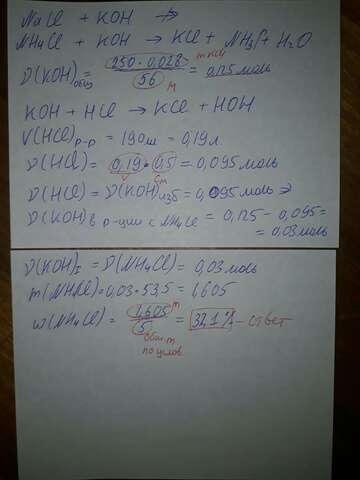 NaCl + KOH ↛
NH4Cl + KOH → KCl + NH3↑ + H2O
ν(KOH)общ = 250·0,028 / 56 = 0,125 моль
m KOH
M
KOH + HCl → KCl + HOH
V(HCl)р-р = 190мл = 0,19 л.
ν(HCl) = 0,19 · 0,5 = 0,095 моль
V Cм
ν(HCl) = ν(KOH)изб = 0,095 моль =>
ν(KOH) в р-ции с NH4Cl = 0,125 - 0,095 =
= 0,03 моль
ν(KOH)I = ν(NH4Cl) = 0,03 моль
m(NH4Cl) = 0,03 · 53,5 = 1,605
ω(NH4Cl) = 1,605 / 5 = 32,1% - ответ
m
общ. m
по услов.